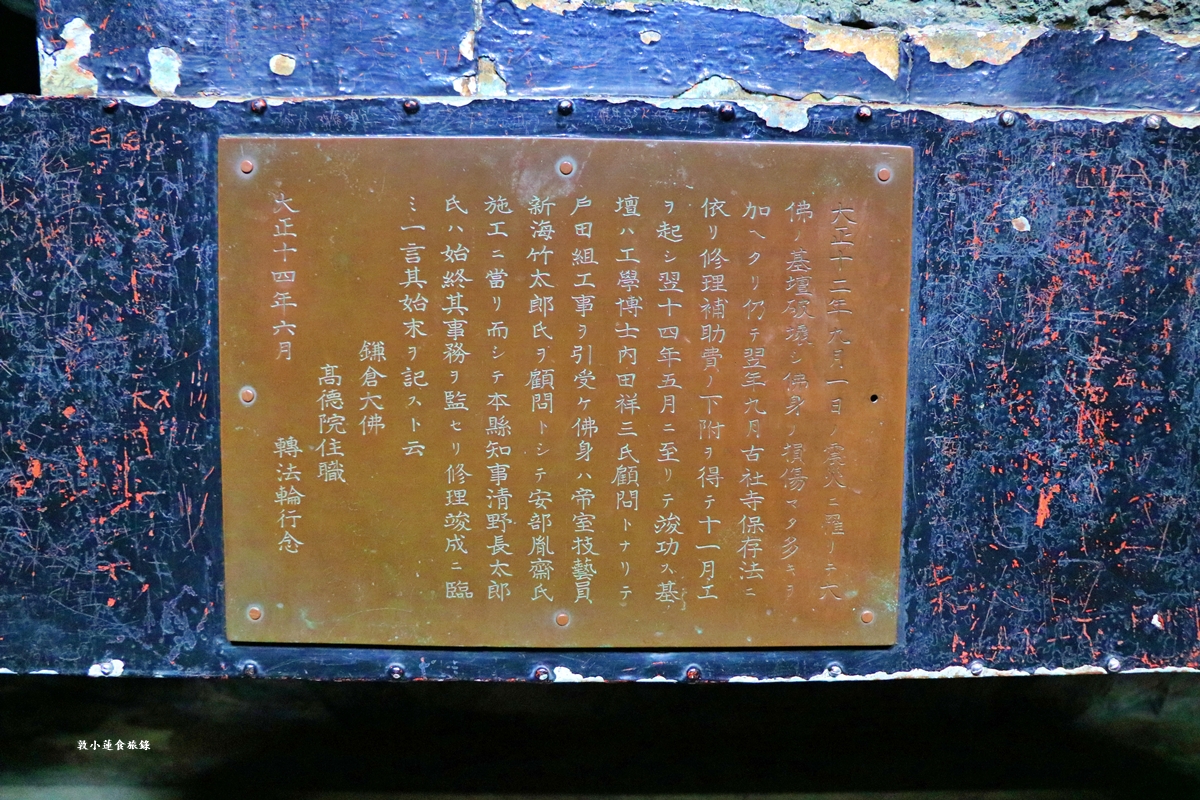 大正十二年九月一日ノ震災ニ罹リテ大
佛ノ基壇破壊シ佛身ノ損傷マタ多キヲ
加ヘタリ仍テ翌年九月古社寺保存法ニ
依リ修理補助費ノ下附ヲ得テ十一月工
ヲ起シ翌十四年五月ニ至リテ竣功ス基
壇ハ工學博士内田祥三氏顧問トナリテ
戸田組工事ヲ引受ケ佛身ハ帝室技藝員
新海竹太郎氏ヲ顧問トシテ安部胤齋氏
施工ニ當リ而シテ本縣知事清野長太郎
氏ハ始終其事務ヲ監セリ修理竣成ニ臨
ミ一言其始末ヲ記スト云
鎌倉大佛
高德院住職
大正十四年六月 轉法輪行念
敦小蓮食旅錄